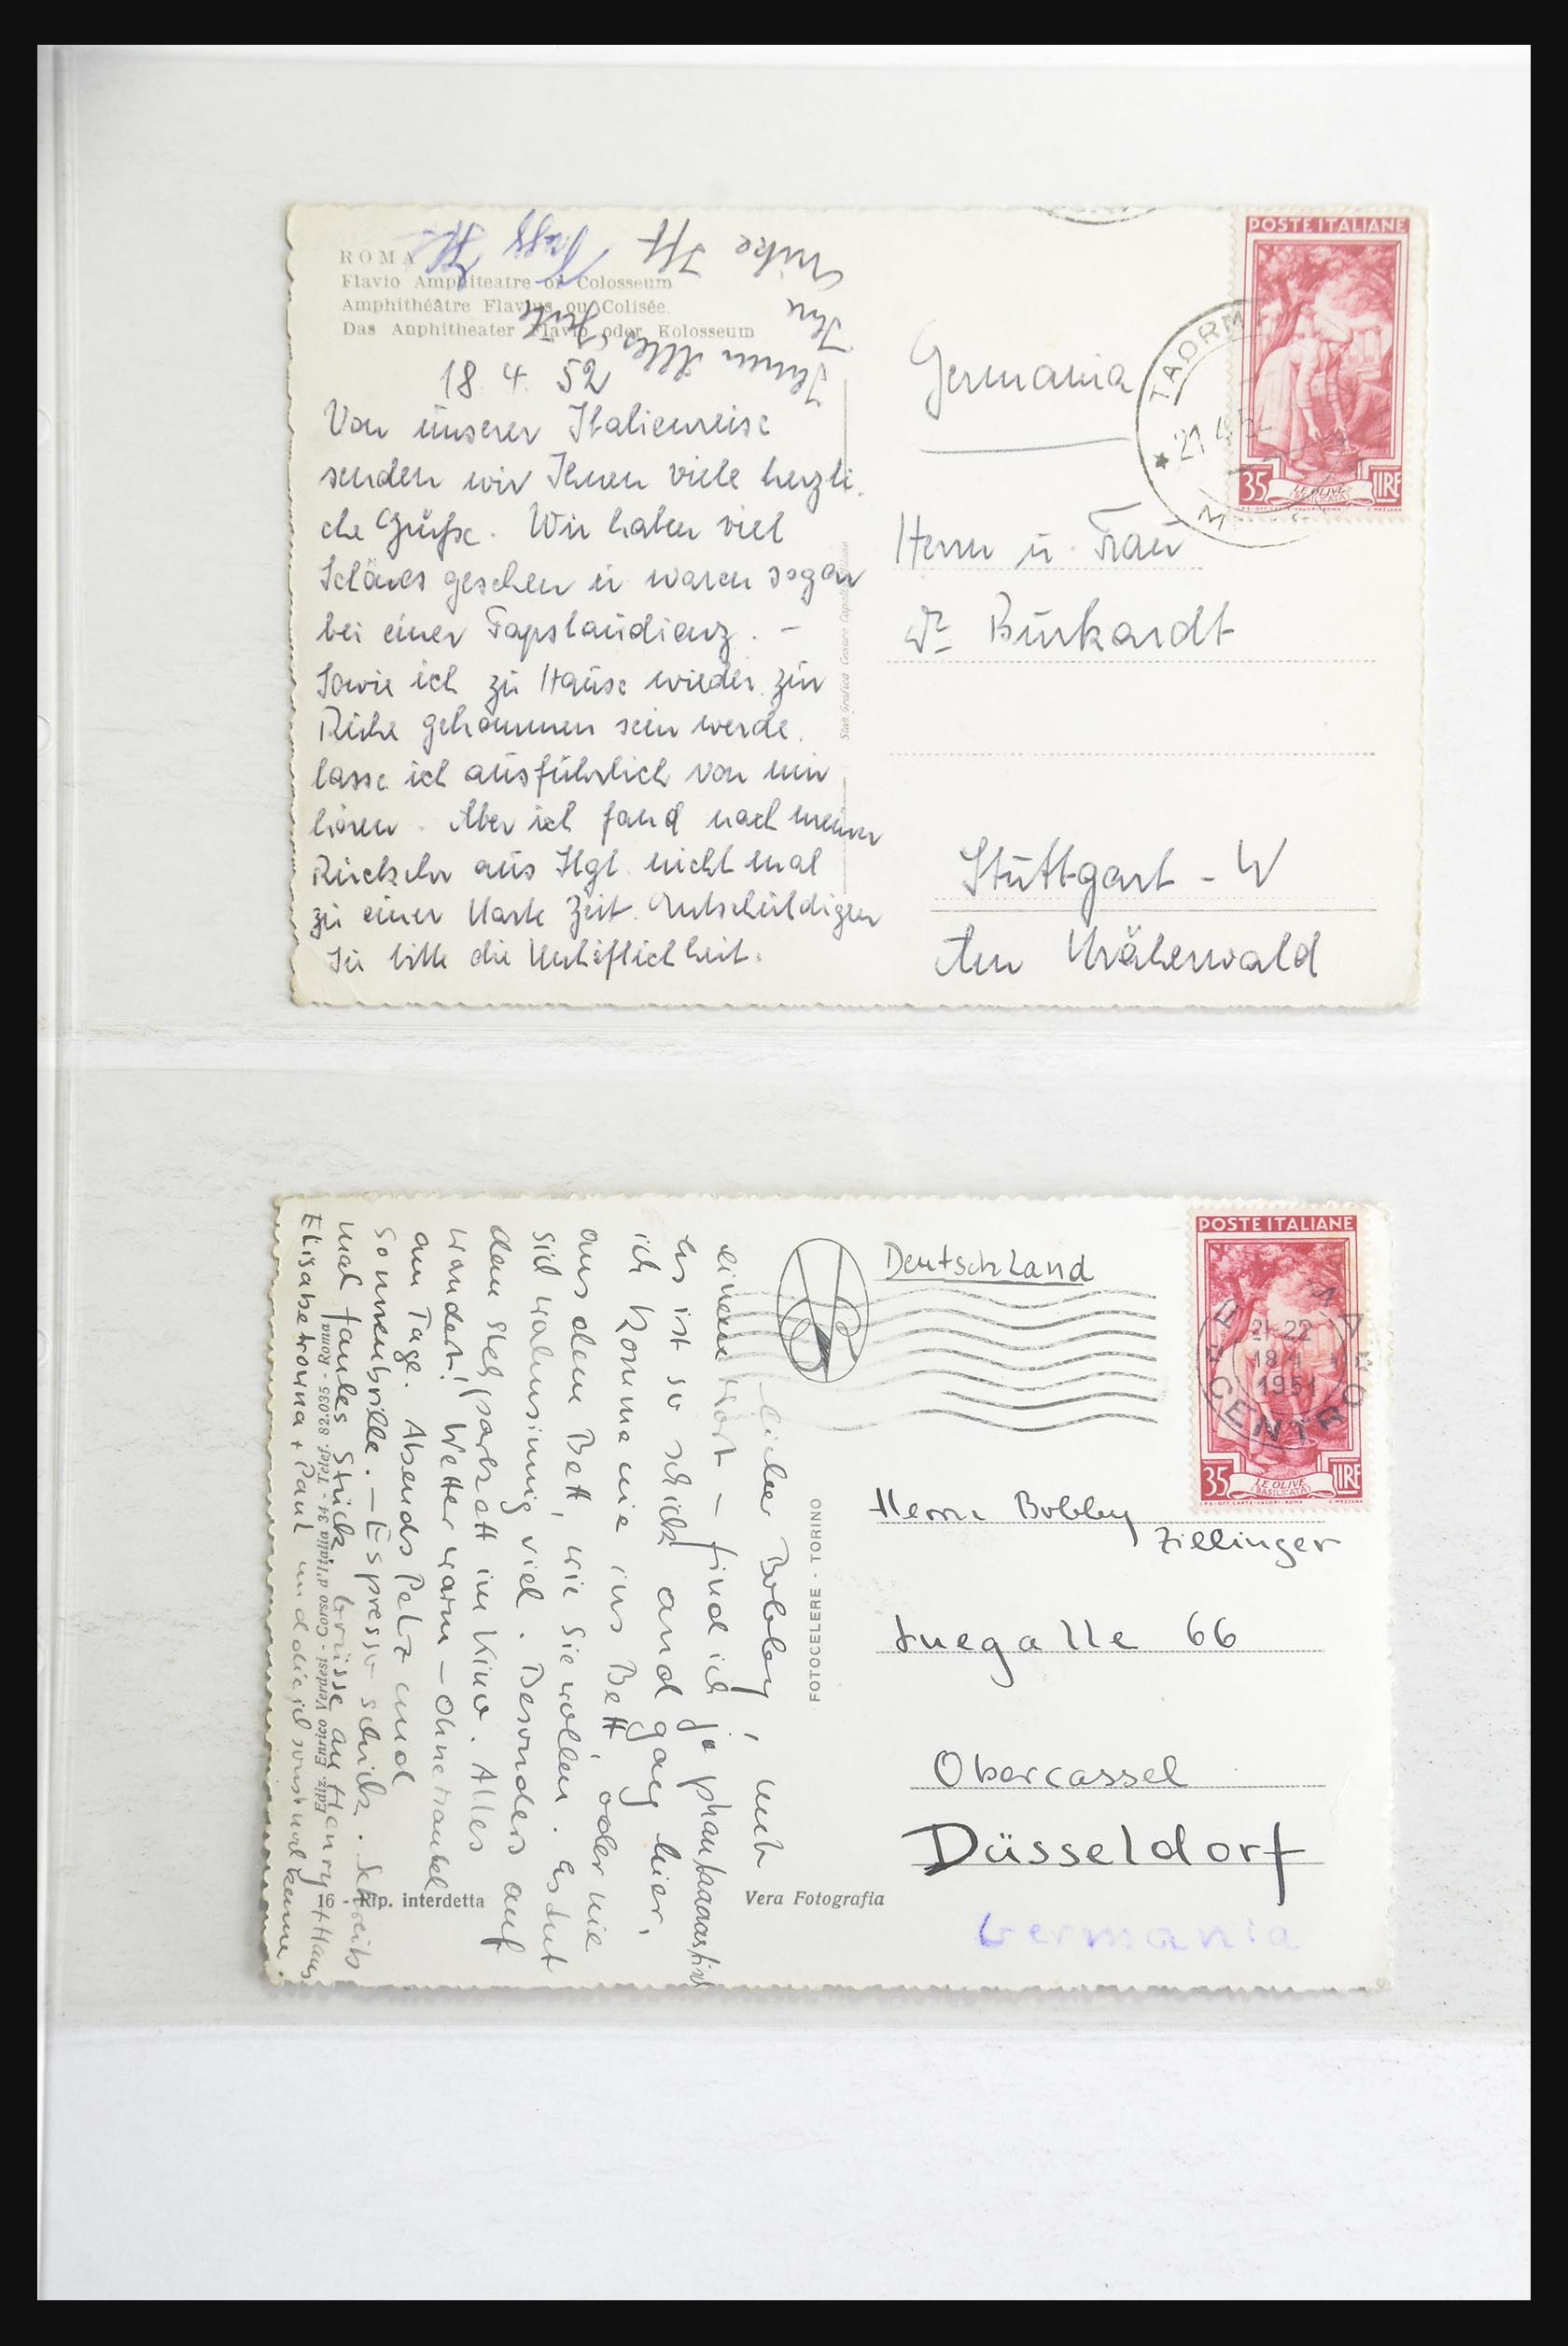 ROMA
Flavio Amphiteatre or Colosseum
Amphithéâtre Flavius ou Colisée.
Das Anphitheater Flavio oder Kolosseum
18. 4. 52
Von unserer Italienreise
senden wir Ihnen viele herzli-
che Grüße. Wir haben viel
Schönes gesehen u waren sogar
bei einer Papstaudienz. -
Sowie ich zu Hause wieder zur
Ruhe gekommen sein werde,
lasse ich ausführlich von mir
hören. Aber ich fand nach meiner
Rückkehr aus nicht mal
zu einer Karte Zeit. Entschuldigen
Sie bitte die Unhöflichkeit.
Ihnen Alles Gute
Ihre
Germania
Herrn u. Frau
Dr Burkardt
Stuttgart - W
Am Kräherwald
POSTE ITALIANE
35 LIRE
LE OLIVE
(BASILICATA)
TAORM
21 4 5
Deutschland
Herrn Bobby
Zillinger
Luegalle 66
Obercassel
Düsseldorf
Germania
POSTE ITALIANE
35 LIRE
LE OLIVE
(BASILICATA)
21-22
18 4
1951
CENTRO
FOTOCELERE - TORINO
Lieber Bobby, mit
einem Wort - find ich ja phantaaastisch
Es ist so schick and gay hier,
ich komme nie ins Bett, oder nie
aus dem Bett, wie Sie wollen. Es tut
sich wahnsinnig viel. Besonders auf
dem Stehparkett im Kino. Alles
wandert! Wetter warm - Ohnemantel
am Tage. Abends Pelz und
Sonnenbrille. - Espresso schick. Schreib
mal faules Stück. Grüsse an Henry + Hans
Elisabethowna + Paul und die ich sonst mal kenne.
Ediz. Enrico Verdesi - Corso d'Italia 34 - Telef. 82.035 - Roma
16 - Rip. interdetta
Vera Fotografia